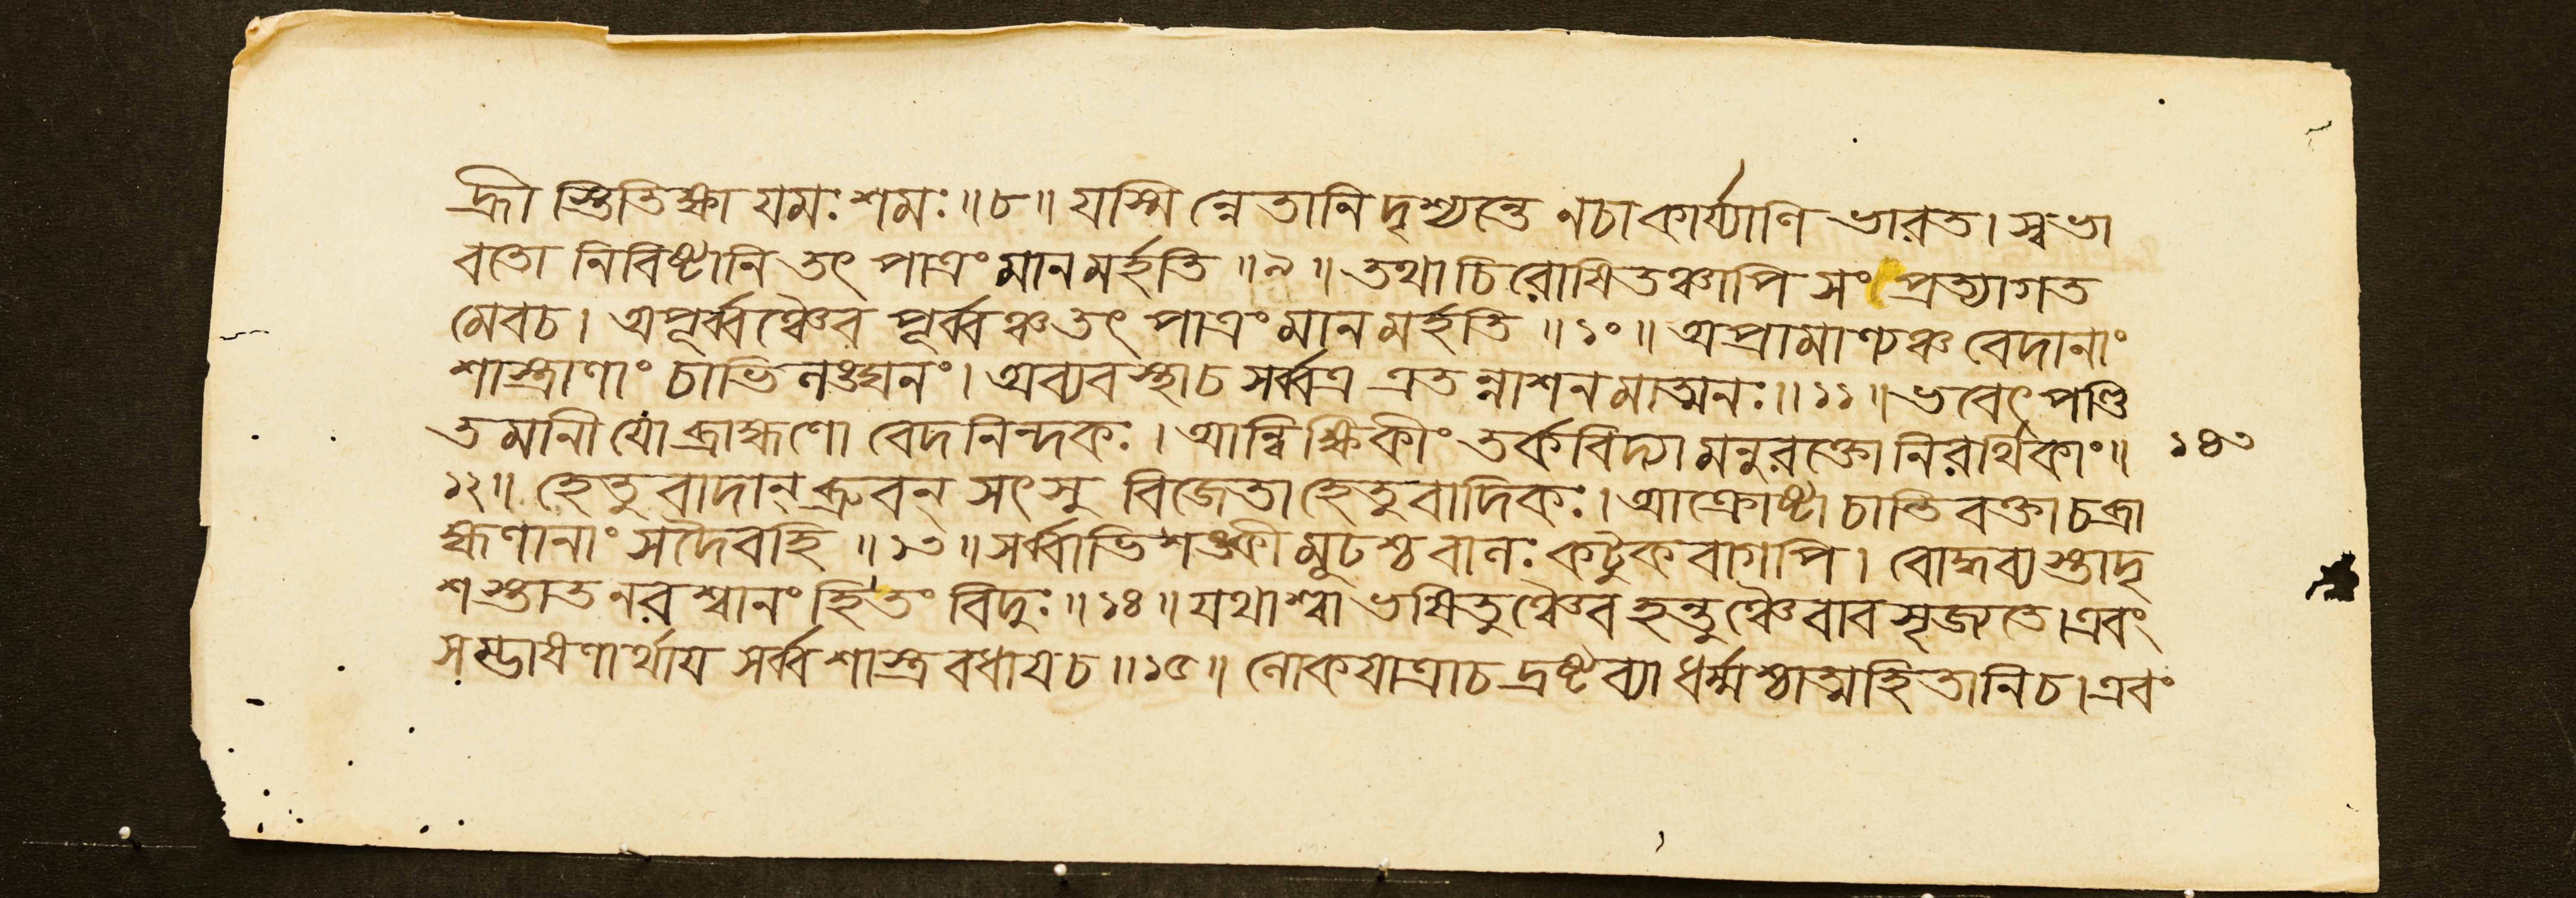 দ্ধ্রী স্তিতিক্ষা যমঃ শমঃ ॥ ৮ ॥ যস্মি ন্নেতানি দৃশ্যন্তে নচাকার্য্যাণি ভারত। স্বভা
বতো নিবিষ্টানি তৎ পাত্রং মানমর্হতি ॥ ৯ ॥ তথা চিরোষিতঞ্চাপি সংপ্রত্যাগত
মেবচ। অপূর্ব্বঞ্চৈব পূর্ব্বঞ্চ তৎ পাত্রং মানমর্হতি ॥ ১০ ॥ অপ্রামাণ্যঞ্চ বেদানাং
শাস্ত্রাণাং চাভিলঙ্ঘনং। অব্যবস্থাচ সর্ব্বত্র এতন্নাশনমাত্মনঃ ॥ ১১ ॥ ভবেৎ পণ্ডি
তমানী যো ব্রাহ্মণো বেদনিন্দকঃ। আন্বিক্ষিকীং তর্কবিদ্যামনুরক্তো নিরার্থিকাং ॥ ১৪৩
১২ ॥ হেতুবাদান্ ব্রুবন্ সৎসু বিজেতাহেতুবাদিকঃ। আক্রোষ্টা চাতিবক্তাচ ব্রা
হ্মণানাং সদৈবহি ॥ ১৩ ॥ সর্ব্বাভিশঙ্কী মূঢশ্চ বালঃ কটুকবাগপি। বোদ্ধব্যস্তাদৃ
শস্তাত নরশ্বানং হি তং বিদুঃ ॥ ১৪ ॥ যথাশ্বা ভষিতুঞ্চৈব হন্তুঞ্চৈবাবসৃজ্যতে। এবং
সম্ভাষণার্থায সর্ব্বশাস্ত্রবধাযচ ॥ ১৫ ॥ লোকযাত্রাচ দ্রষ্টব্যা ধর্ম্মশ্চাত্মহিতানিচ। এবং